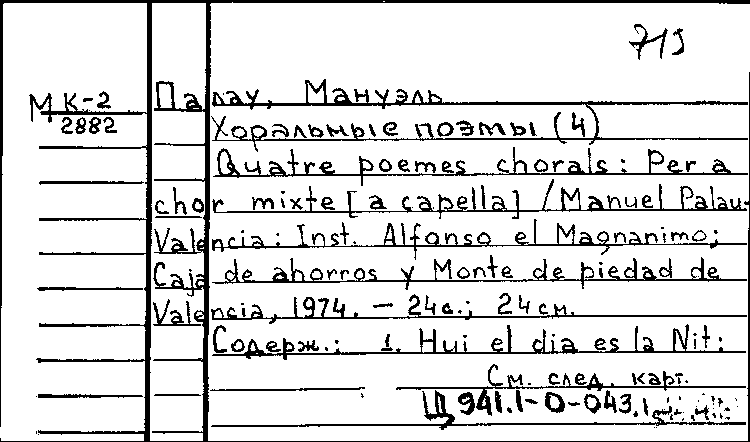 713
МК-2
2882
Палау, Мануэль
Хоральные поэмы (4)
Quatre poemes chorals: Per a
chor mixte [a capella] / Manuel Palau.
Valencia: Inst. Alfonso el Magnanimo;
Caja de ahorros y Monte de piedad de
Valencia, 1974. – 24с.; 24 см.
Содерж.: 1. Hui el dia es la Nit:
См. след. карт.
Ц 941.1-0-043.1